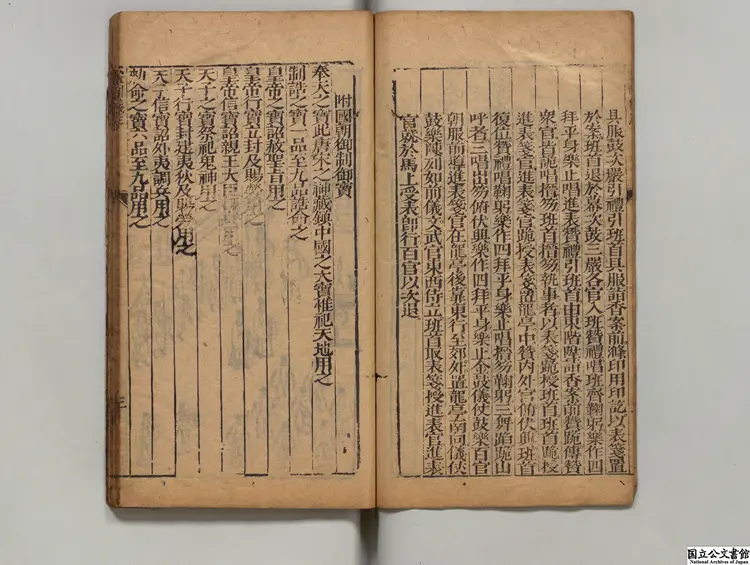 具服鼓次嚴引禮引班首具服詣香案前滌印用印訖以表箋置
於案班首退於幕次鼓三嚴各官入班贊禮唱班齊鞠躬樂作四
拜平身樂止唱進表贊禮引班首由東階陞詣香案前贊跪傳贊
衆官皆跪唱搢笏班首搢笏執事者以表箋跪授班首班首跪授
進表箋官進表箋官跪授表箋置龍亭中贊內外官俯伏興班首
復位贊禮唱鞠躬樂作四拜平身樂止唱搢笏鞠躬三舞蹈跪山
呼者三唱出笏俯伏興樂作四拜平身樂止金鼓儀仗鼓樂百官
朝服前導進表箋官在龍亭後靠東行至郊外置龍亭南向儀仗
鼓樂陳列如前儀文武官東西侍立班首取表箋授進表官進表
官就於馬上受表卽行百官以次退
附國朝御制御寶
奉天之寶此唐宋之神藏鎮中國之大寶惟祀天地用之
制誥之寶一品至九品誥命之
皇帝之寶詔赦聖旨用之
皇帝行寶立封及賜勞用之
皇帝信寶詔親王大臣
天子之寶祭祀鬼神用之
天子行寶封建夷秋及賜勞用之
天子信寶詔外夷調兵用之
勑命之寶六品至九品用之
三
国立公文書館
National Archives of Japan